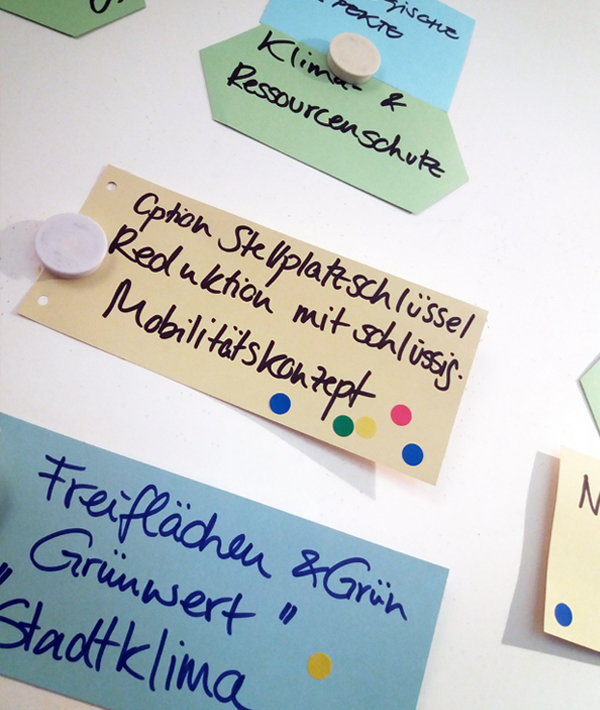 Klima- &
Ressourcenschutz
Option Stellplatzschlüssel
Reduktion mit schlüssig.
Mobilitätskonzept
Freiflächen & Grün
"Grünwert"
Stadtklima
N